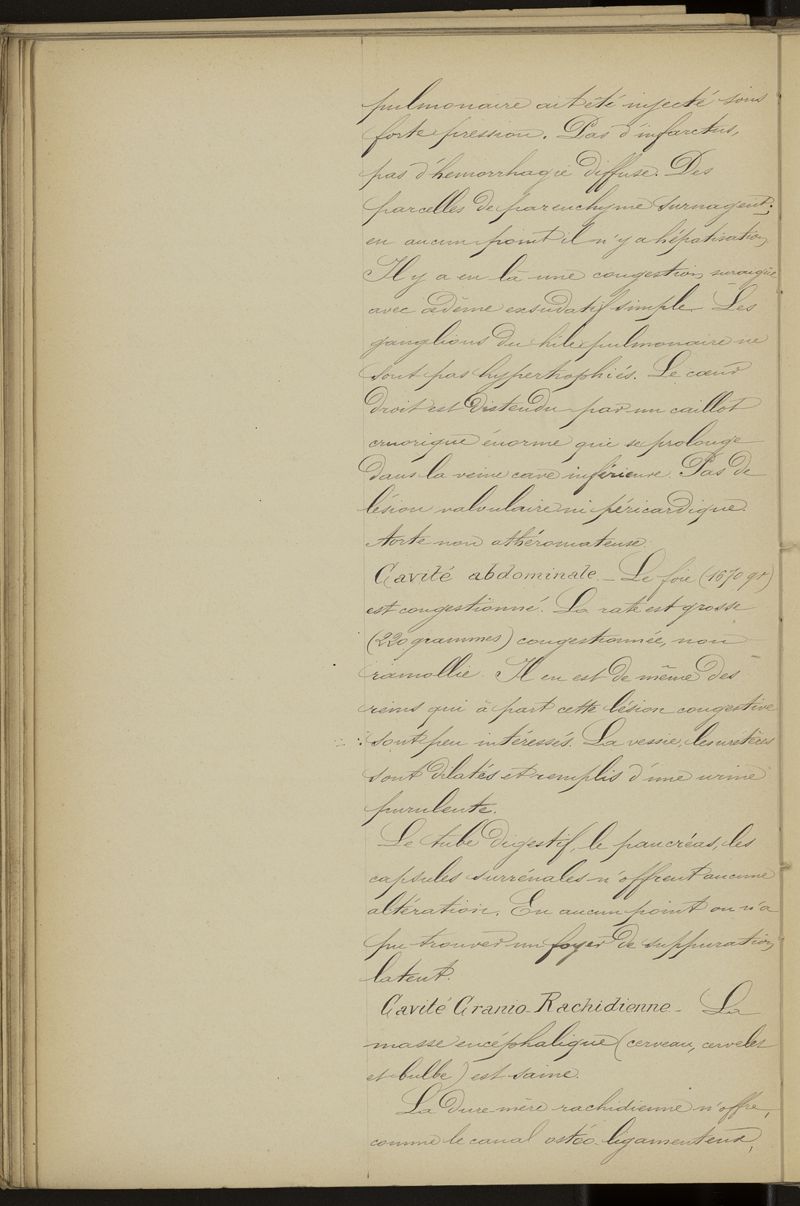 pulmonaire ait été injecté sous
forte pression. Pas d'infarctus,
pas d'hemorrhagie diffuse. Des
parcelles de parenchyme surnagent;
en aucun point il n'y a hépatisation,
Il y a eu là une congestion suraigüe
avec œdème exsudatif simple. Les
ganglions du hile pulmonaire ne
sont pas hypertrophiés. Le cœur
droit est distendu par un caillot
cruorique énorme qui se prolonge
dans la veine cave inférieure. Pas de
lésion valvulaire ni péricardique.
Aorte non athéromateuse.
Cavité abdominale. _ Le foie (1670 gr)
est congestionné. La rate est grosse
(220 grammes) congestionnée, non
ramollie. Il en est de même des
reins qui à part cette lésion congestive
sont peu intéressés. La vessie, les uretères
sont dilatés et remplis d'une urine
purulente.
Le tube digestif, le pancréas, les
capsules surrénales n'offrent aucune
altération. En aucun point on n'a
pu trouver un foyer de suppuration
latent.
Cavité Cranio-Rachidienne _ La
masse encéphalique (cerveau, cervelet
et bulbe) est saine.
La dure mère rachidienne n'offre,
comme le canal ostéo-ligamenteux,